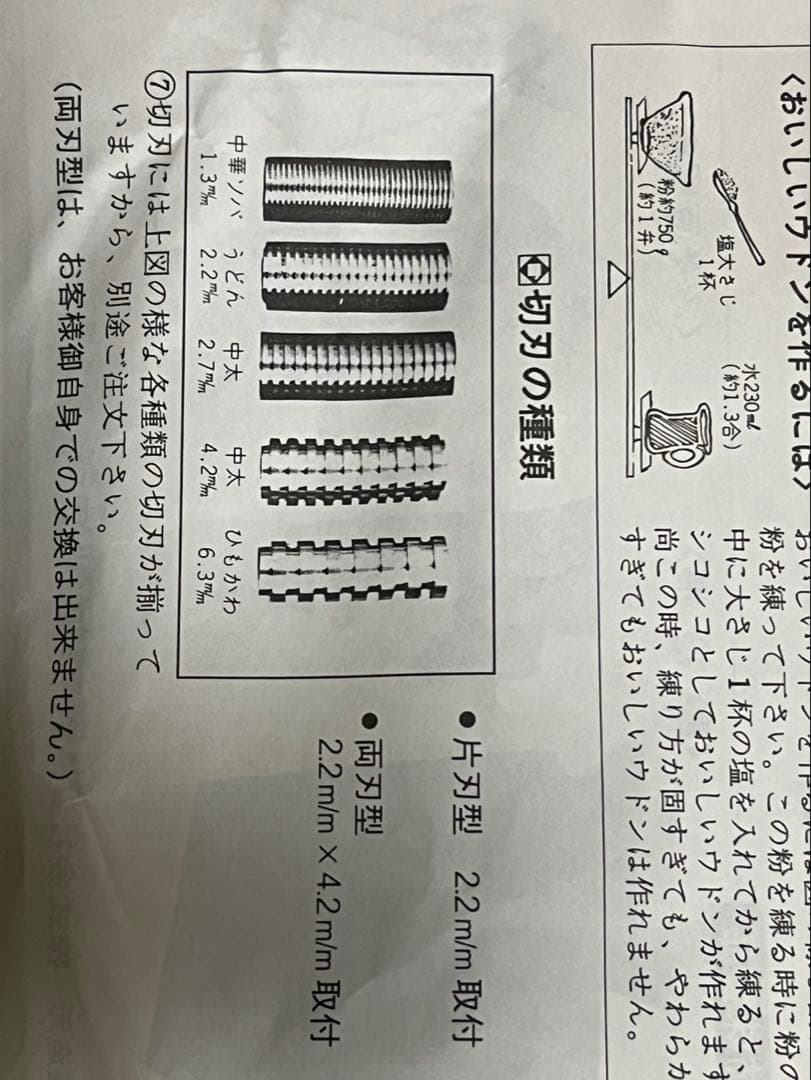 〈おいしいウドンを作るには〉
塩大さじ
1杯
水230㎖
(約1.3合)
粉約750g
(約1弁)
粉を練って下さい。この粉を練る時に粉の
中に大さじ1杯の塩を入れてから練ると、
シコシコとしておいしいウドンが作れます
尚この時、練り方が固すぎても、やわらか
すぎてもおいしいウドンは作れません。
切刃の種類
中華ソバ
1.3m/m
うどん
2.2m/m
中太
2.7m/m
中太
4.2m/m
ひもかわ
6.3m/m
●片刃型 2.2m/m取付
●両刃型
2.2m/m×4.2m/m取付
⑦切刃には上図の様な各種類の切刃が揃って
いますから、別途ご注文下さい。
(両刃型は、お客様御自身での交換は出来ません。)